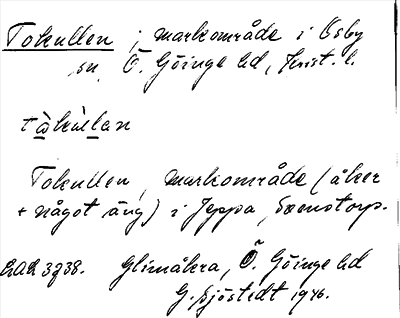 Tokullen, markområde i Osby
sn, Ö. Göinge hd, Krist. l.
tåkùlan
Tokullen, markområde (åker
+ något äng) i Jeppa, Svenstorp.
LAL 3238. Glimåkra, Ö. Göinge hd
G. Sjöstedt 1946.